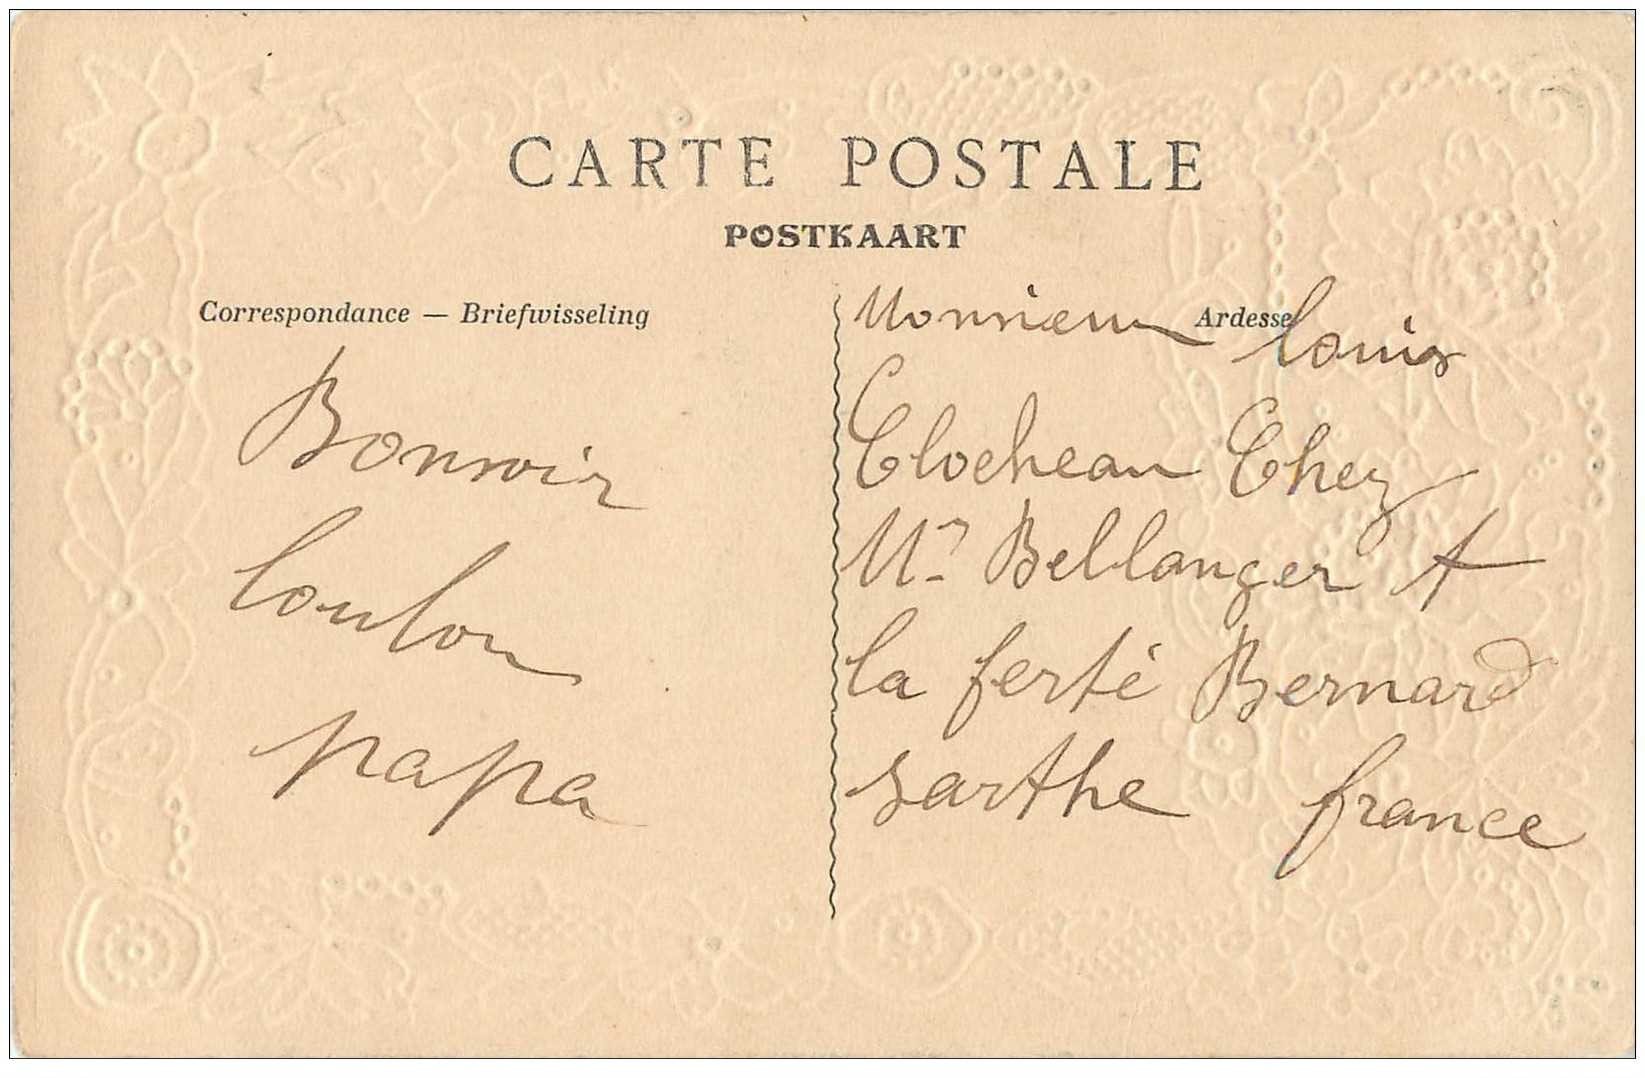 CARTE POSTALE
POSTKAART
Correspondance — Briefwisseling
Ardesse
Bonsoir
loulou
papa
Monsieur louis
Clocheau Chez
Mr Bellanger A
la ferté Bernard
sarthe france